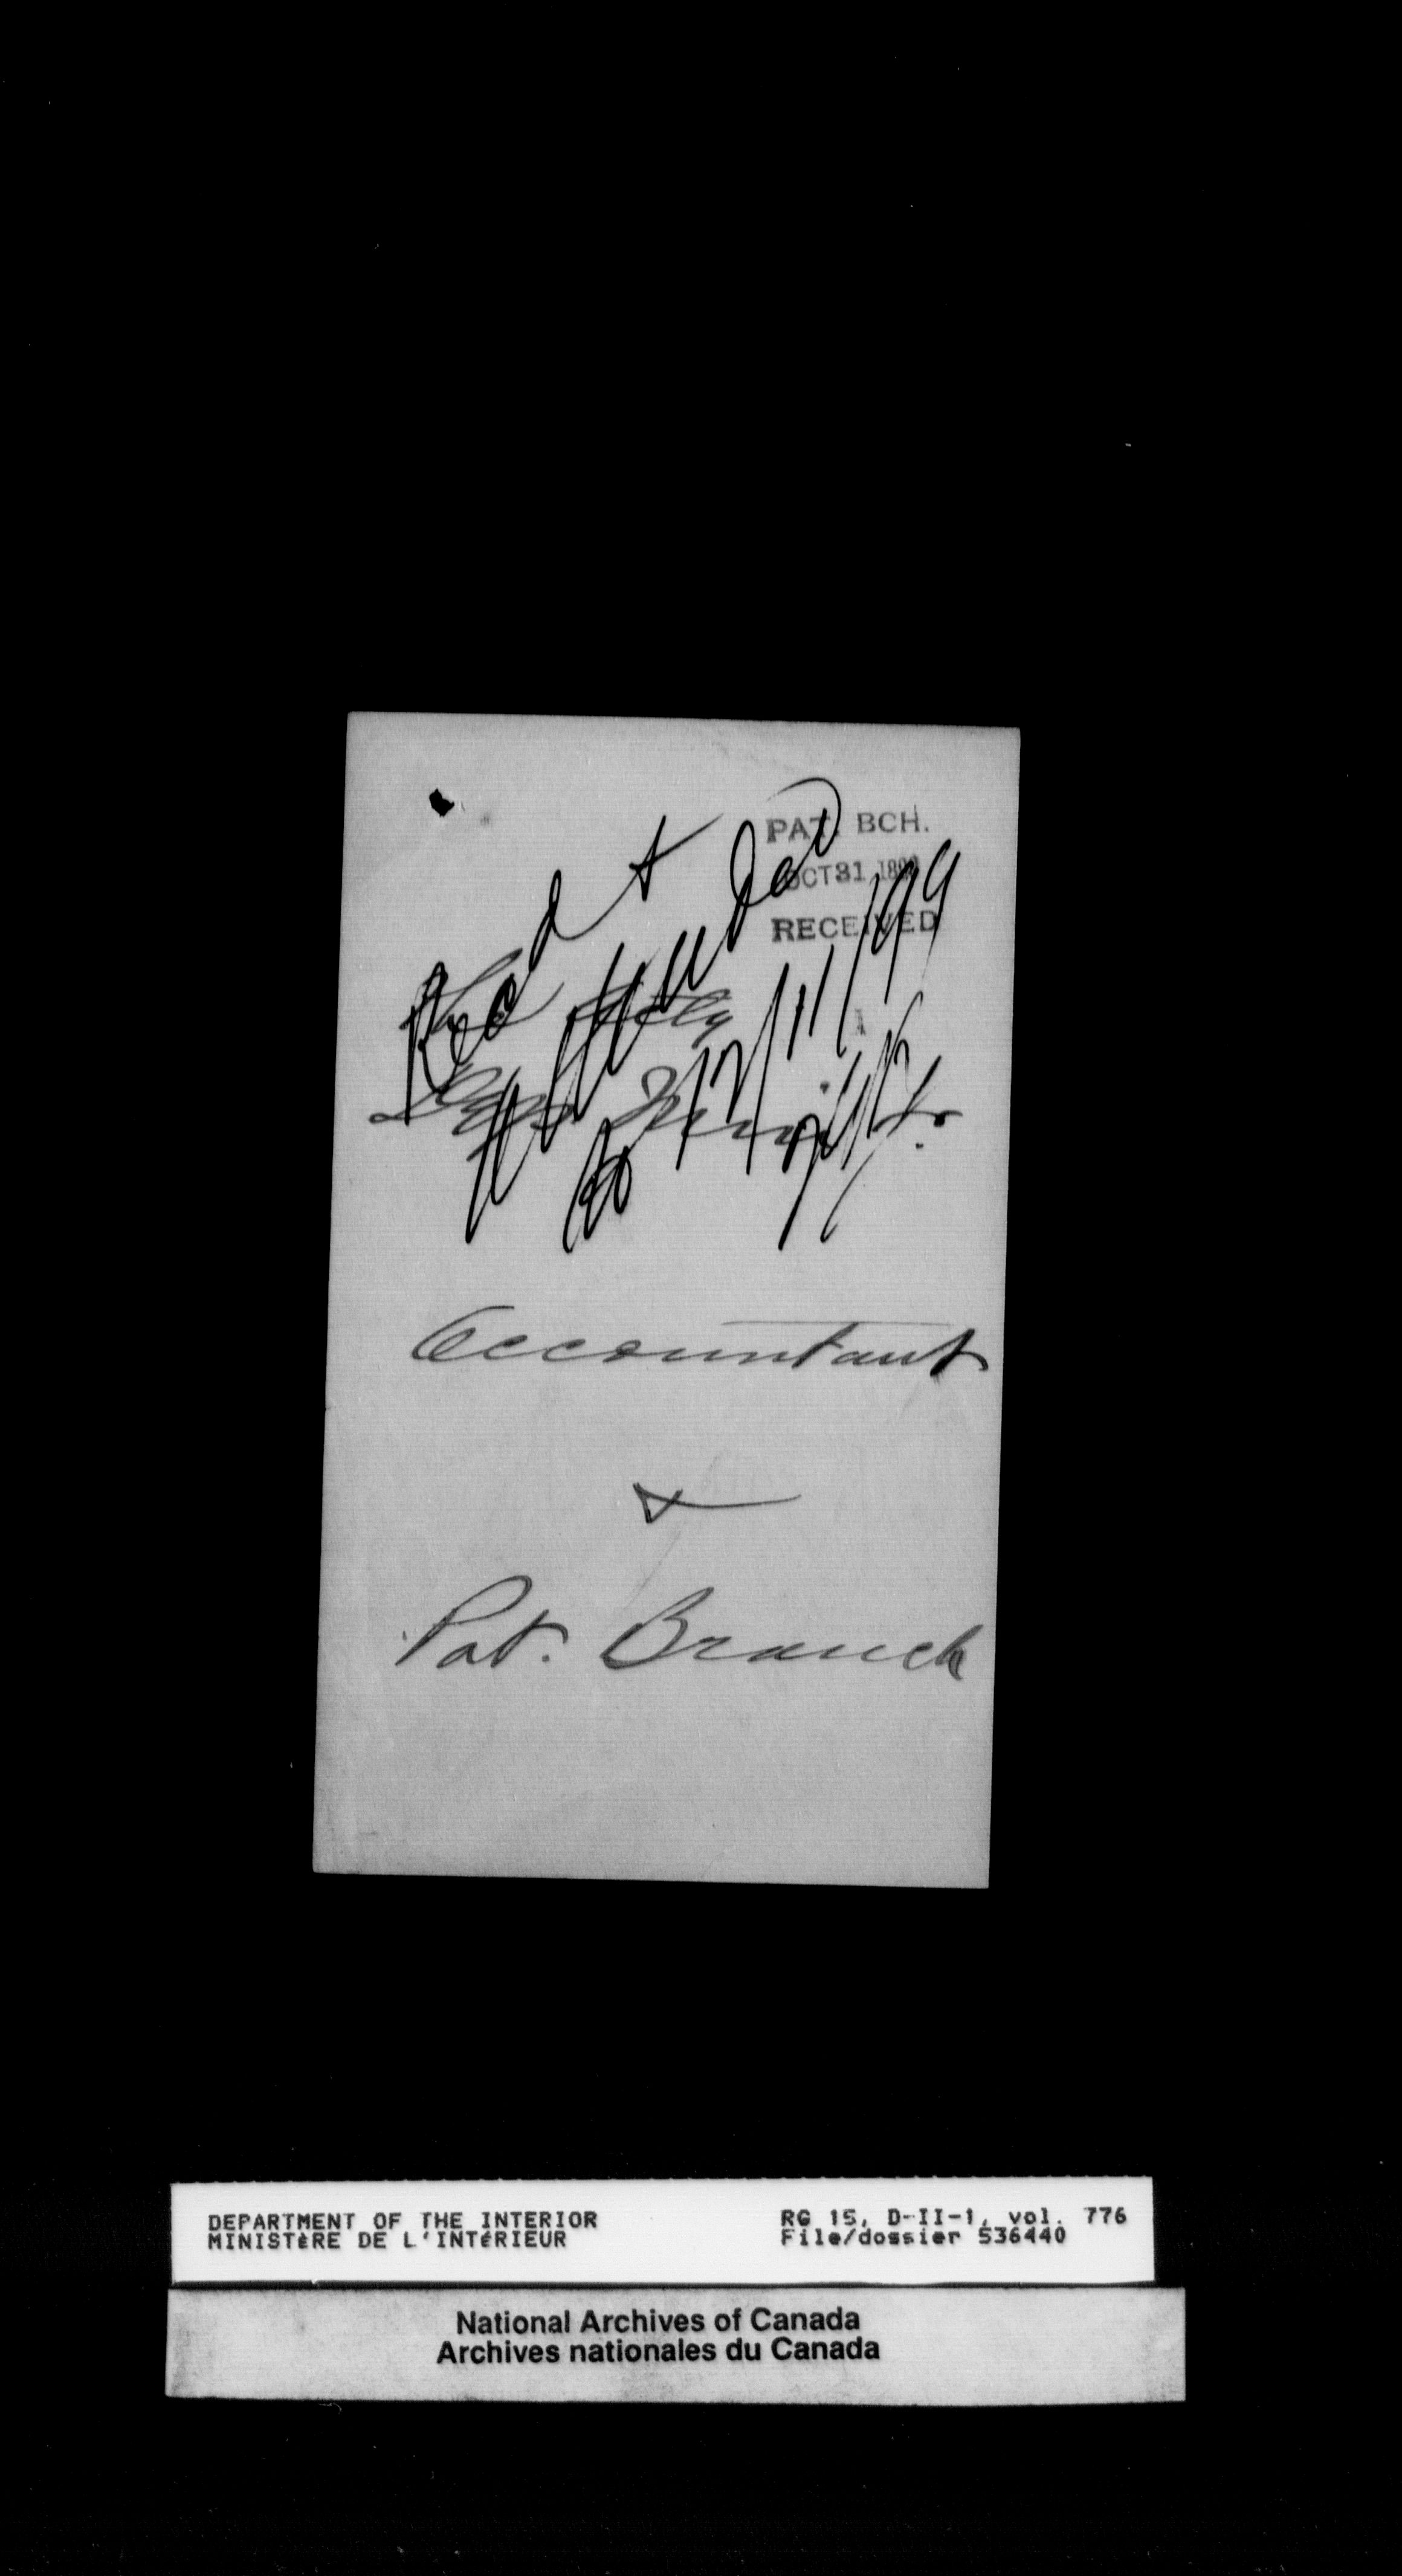 PAT. BCH.
OCT 31 1899
RECEIVED
Rec'd &
The
Dep. Minister
Accountant
&
Pat. Branch
DEPARTMENT OF THE INTERIOR
MINISTÈRE DE L'INTÉRIEUR
RG 15, D-II-1, vol. 776
File/dossier 536440
National Archives of Canada
Archives nationales du Canada